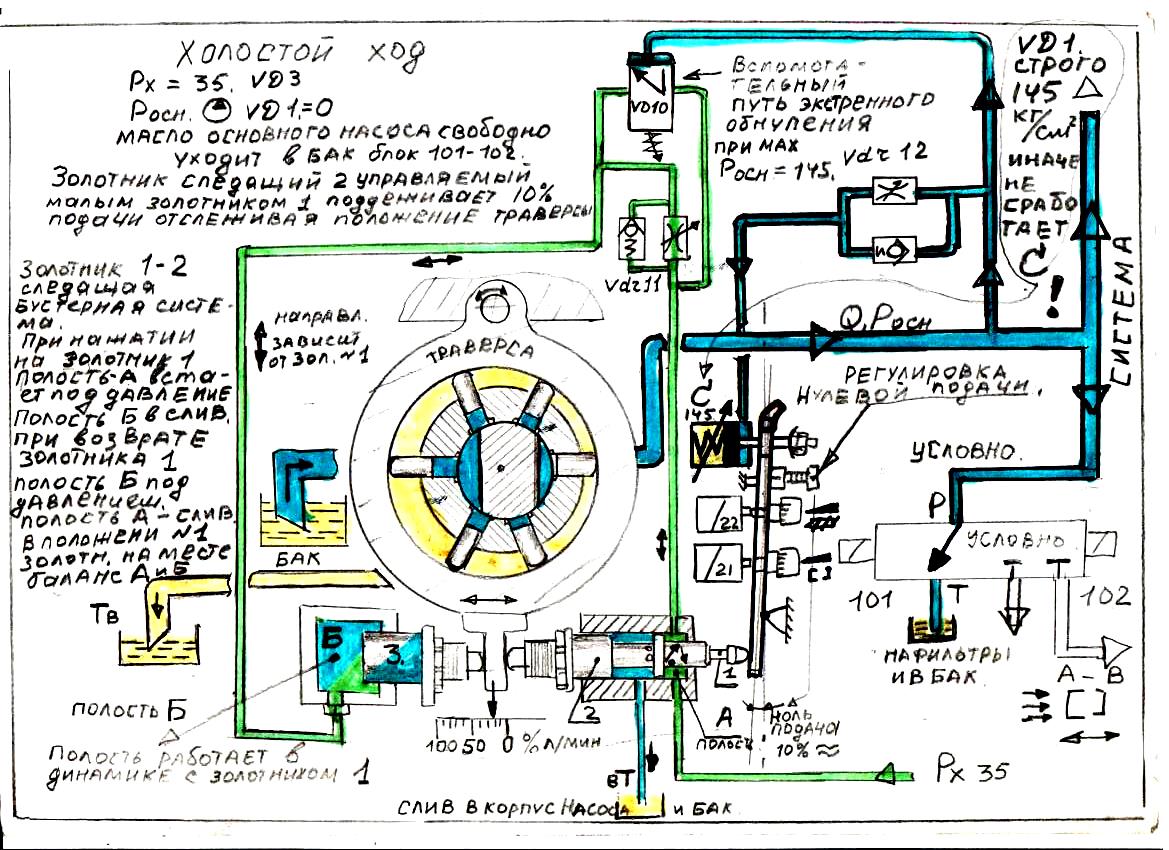 ХОЛОСТОЙ ХОД
Рх = 35. VD3
Росн. VD1=0
МАСЛО ОСНОВНОГО НАСОСА СВОБОДНО
УХОДИТ В БАК БЛОК 101-102.
ЗОЛОТНИК СЛЕДАЩИЙ 2 УПРАВЛЯЕМЫЙ
МАЛЫМ ЗОЛОТНИКОМ 1 ПОДДЕНЖИВАЕТ 10%
ПОДАЧИ ОТСЛЕЖИВАЯ ПОЛОЖЕНИЕ ТРАВЕРСЫ
ЗОЛОТНИК 1-2
СЛЕДАЩАЯ
БУСТЕРНАЯ СИСТЕ-
МА.
ПРИ НАЖАТИИ
НА ЗОЛОТНИК 1
ПОЛОСТЬ-А ВСТА-
ЕТ ПОД ДАВЛЕНИЕ
ПОЛОСТЬ Б В СЛИВ.
ПРИ ВОЗВРАТЕ
ЗОЛОТНИКА 1
ПОЛОСТЬ Б ПОД
ДАВЛЕНИЕМ.
ПОЛОСТЬ А - СЛИВ.
В ПОЛОЖЕНИ №1
ЗОЛОТН. НА МЕСТЕ
БАЛАНС А и Б
НАПРАВЛ.
ЗАВИСИТ
ОТ ЗОЛ. №1
ТРАВЕРСА
VD10
ВСПОМОГА-
ТЕЛЬНЫЙ
ПУТЬ ЭКСТРЕННОГО
ОБНУЛЕНИЯ
ПРИ МАХ
Росн = 145.
Vdr 12
Vdr 11
VD1.
СТРОГО
145
КГ/СМ²
ИНАЧЕ
НЕ
СРАБО
ТАЕТ
С
!
СИСТЕМА
Q, Росн
С
145
РЕГУЛИРОВКА
НУЛЕВОЙ ПОДАЧИ.
22
21
С3
УСЛОВНО.
Р
УСЛОВНО
101
Т
102
НА ФИЛЬТРЫ
И В БАК
А - В
БАК
Тв
Б
3.
2
1
ПОЛОСТЬ Б
ПОЛОСТЬ РАБОТАЕТ В
ДИНАМИКЕ С ЗОЛОТНИКОМ 1
100 50 0 % Л/МИН
А
ПОЛОСТЬ
НОЛЬ
ПОДАЧА
10% ≈
вТ
Рх 35
СЛИВ В КОРПУС НАСОСА И БАК